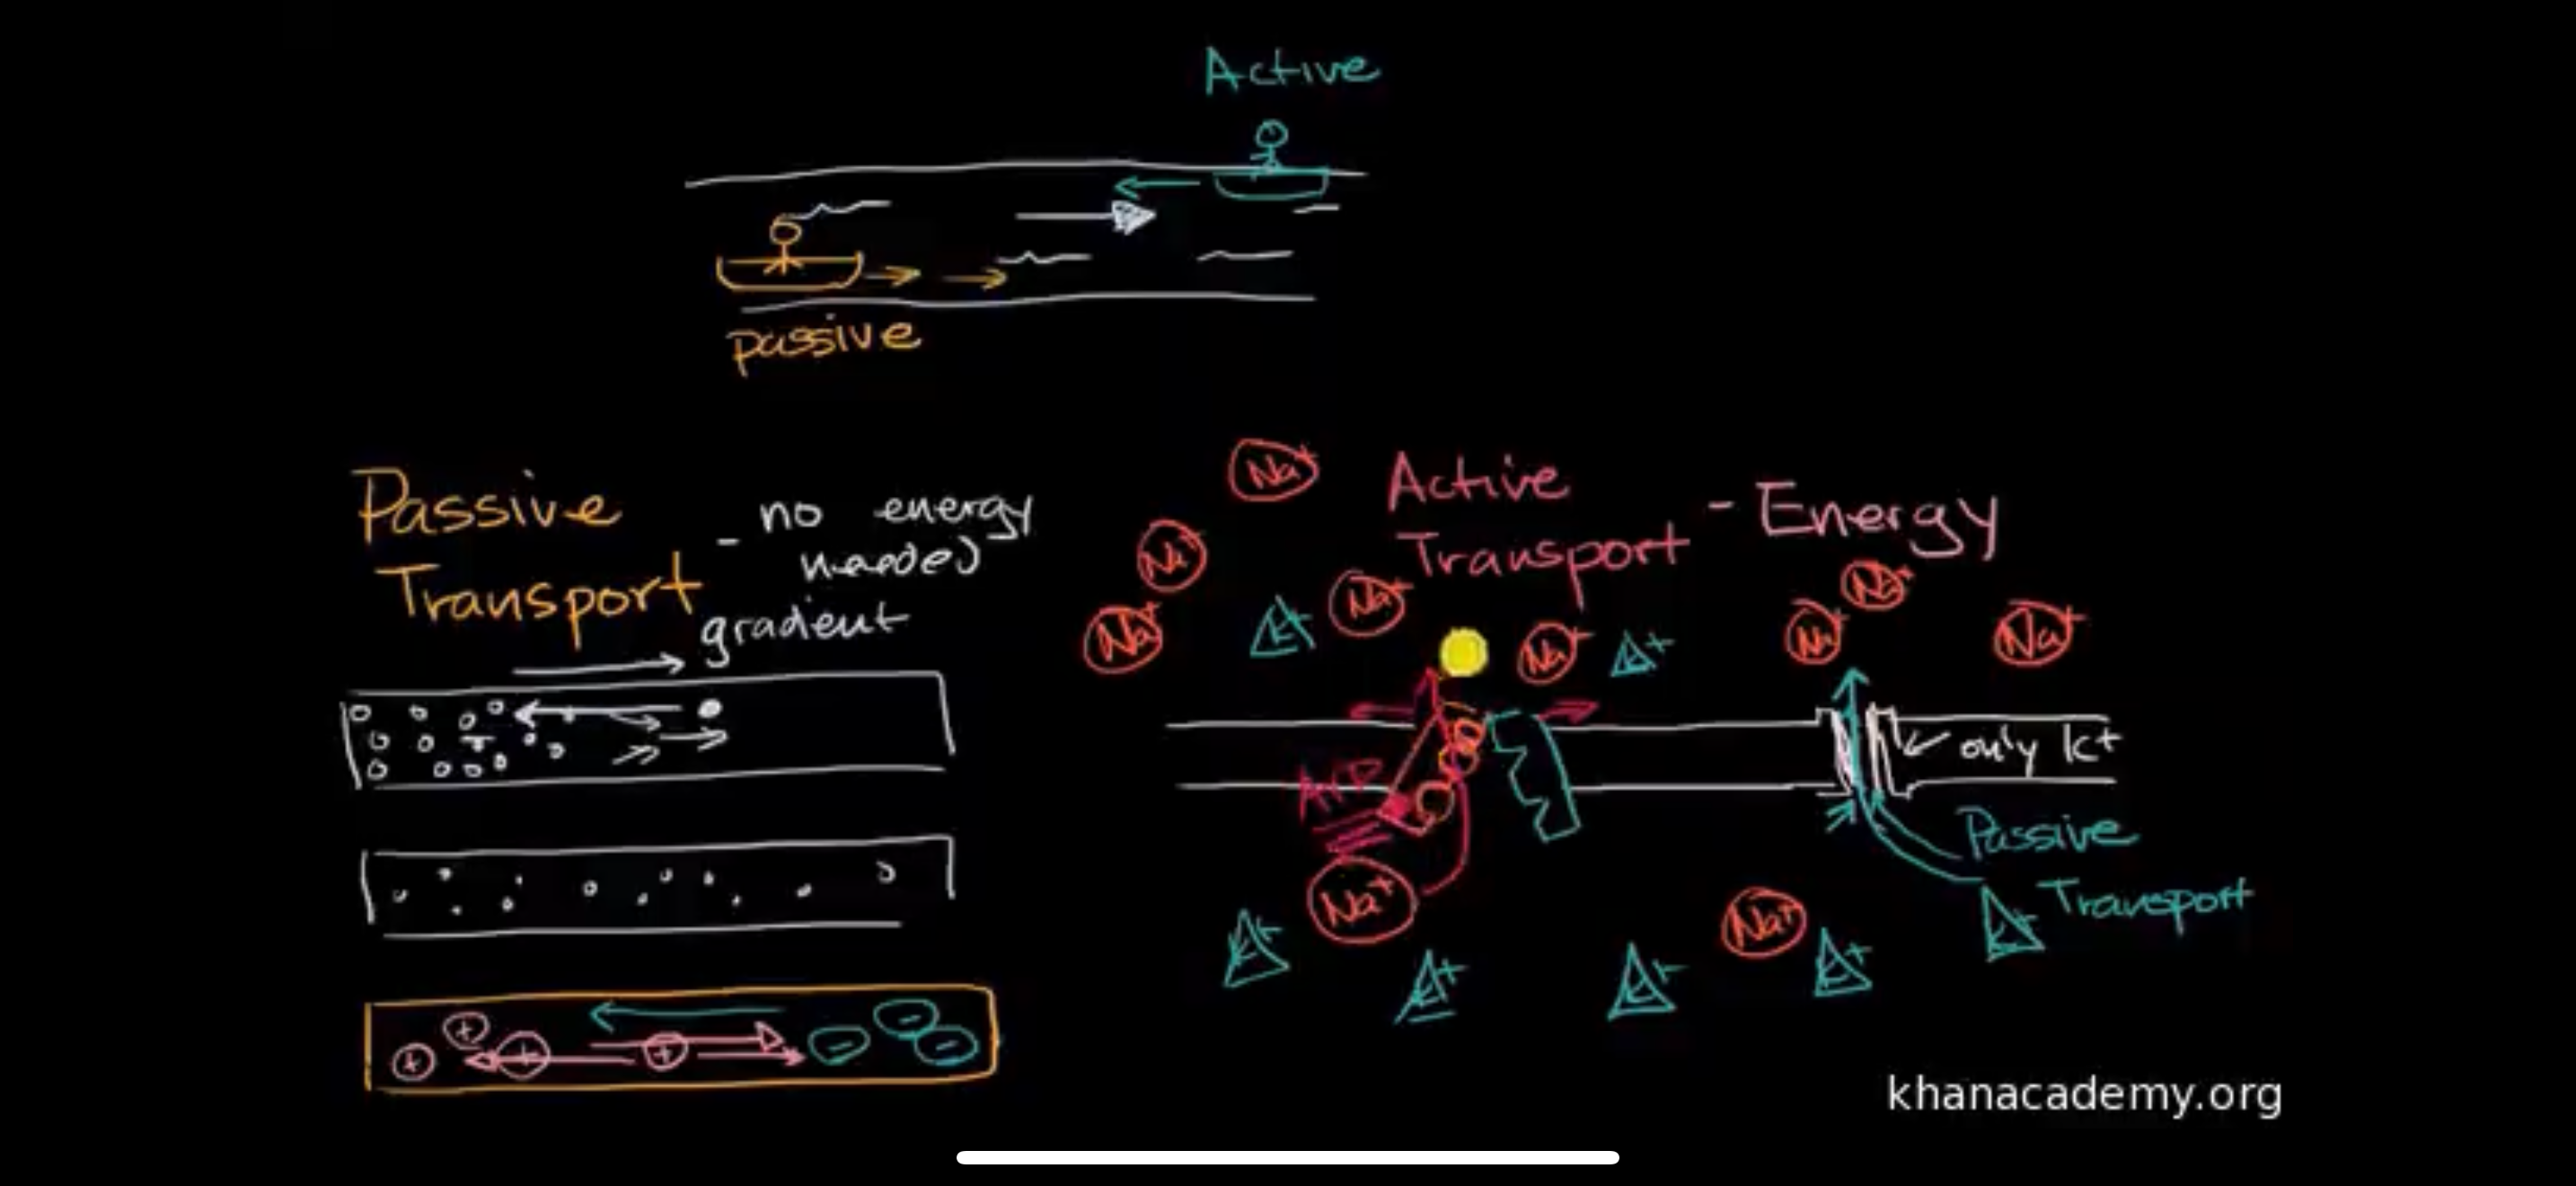 Active
passive
Passive
Transport
- no energy
needed
gradient
Active
Transport
- Energy
Na+
Na+
Na+
Na+
K+
Na+
K+
Na+
Na+
Na+
ATP
only K+
Passive
Transport
Na+
K+
K+
K+
Na+
K+
K+
+
+
+
+
-
-
-
khanacademy.org